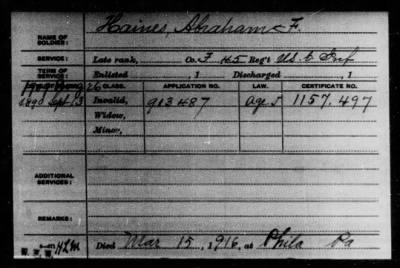 NAME OF SOLDIER: Haines, Abraham F.
SERVICE: Late rank, Co. F 45 Reg't U.S. C Inf
TERM OF SERVICE: Enlisted , 1 Discharged , 1
CLASS. APPLICATION NO. LAW. CERTIFICATE NO.
1890 Sept 3 Invalid, 913487 Age S 1157.497
Widow,
Minor,
ADDITIONAL SERVICES:
REMARKS:
Died Mar 15, 1916, at Phila Pa